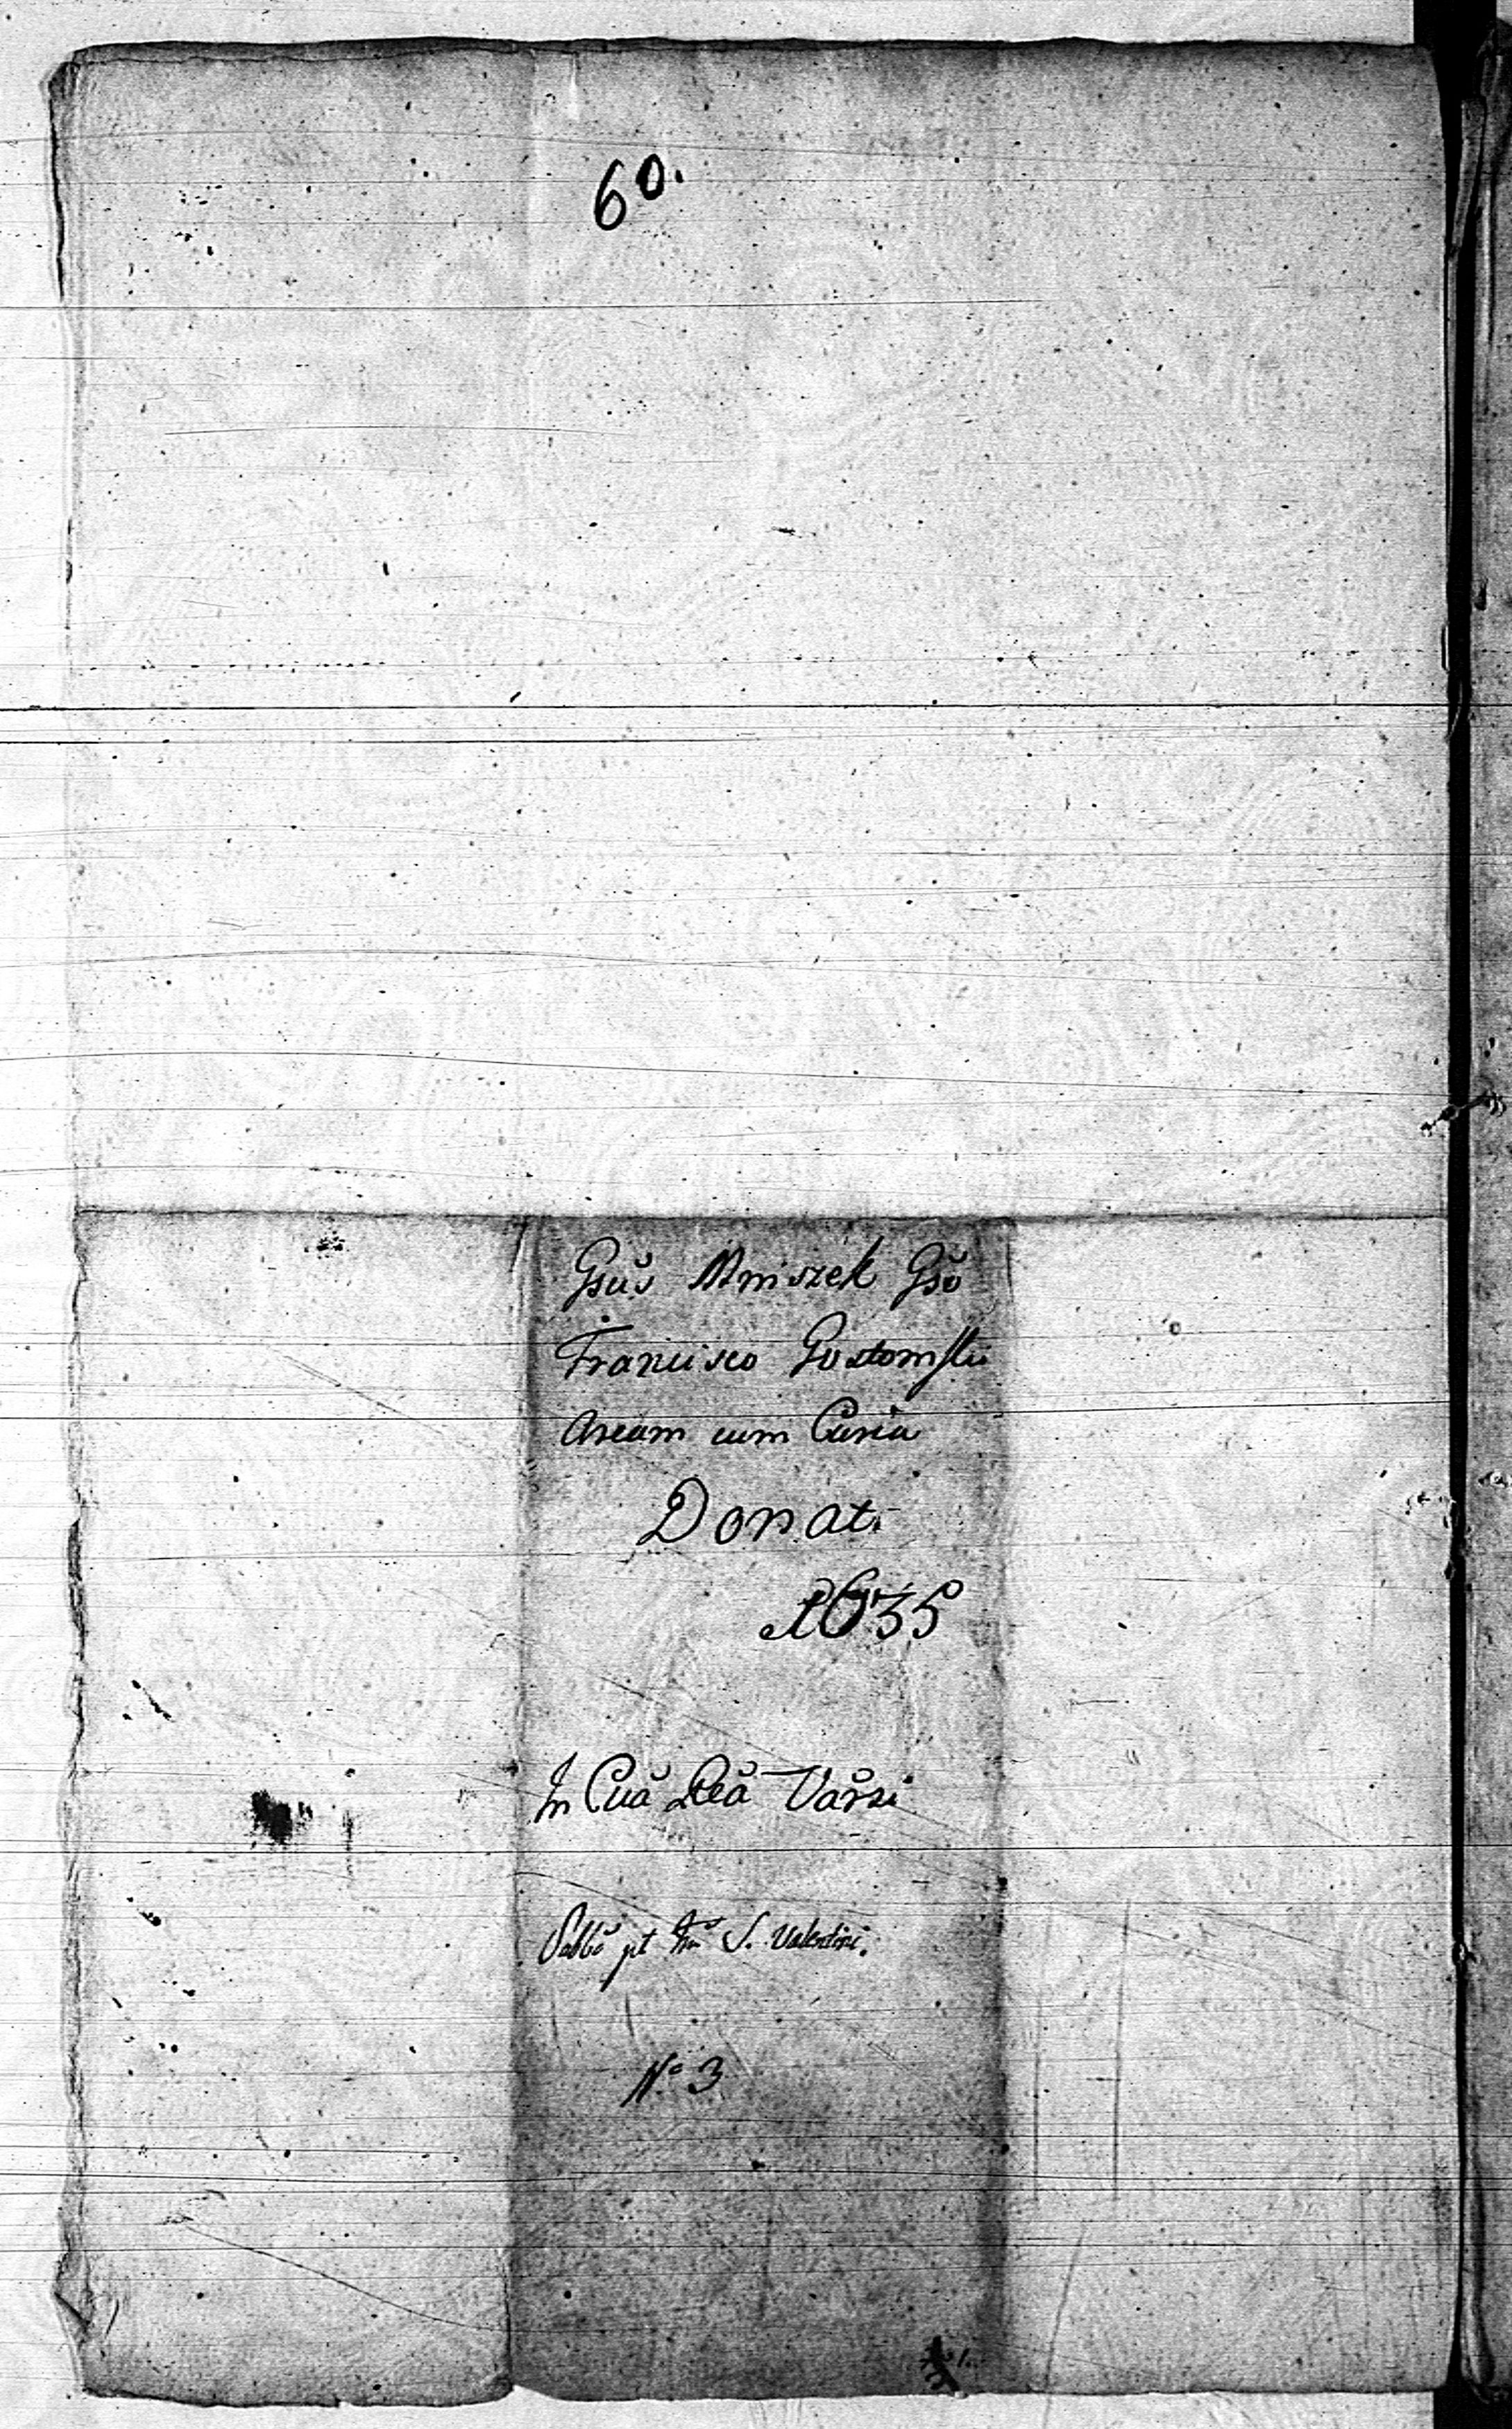 60.
Gsŭs Mniszek Gsŏ
Francisco Gostomski
Aream cum Curia
Donat.
1635
In Cuă Reă Varsă
Sabbŏ pt S. Valentini.
No 3